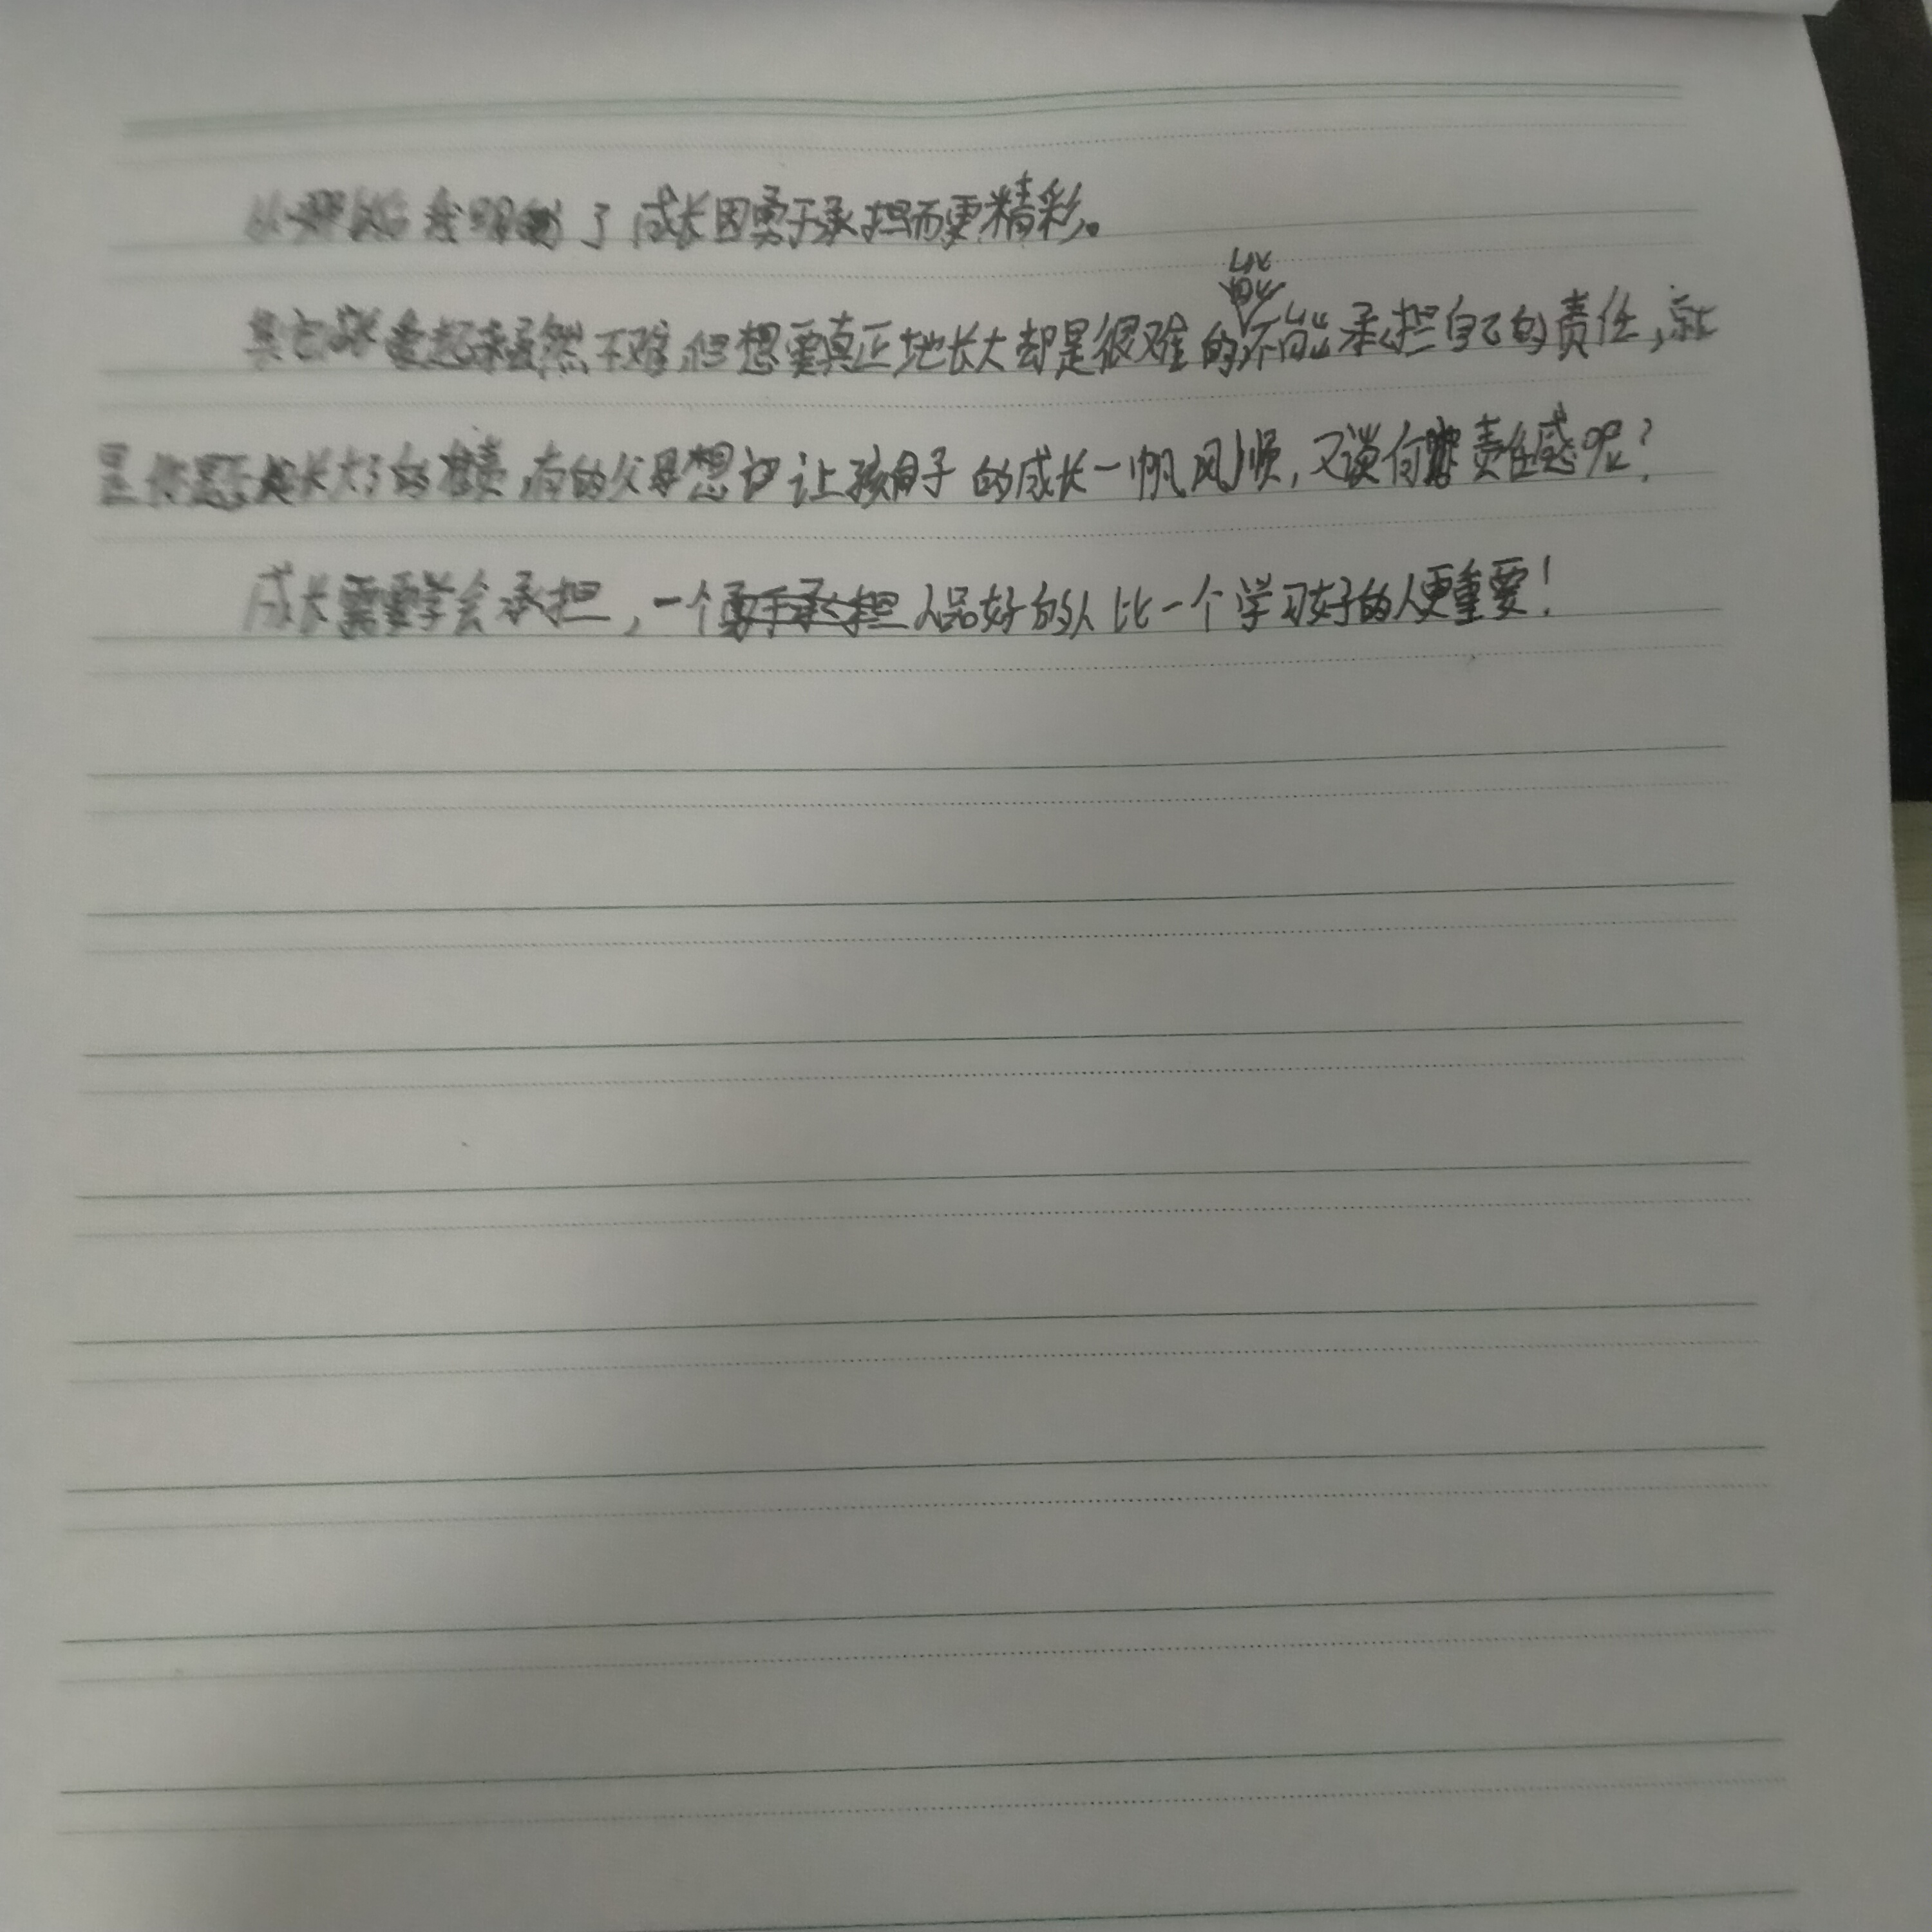 我明白了成长因勇于承担而更精彩。
看起来虽然不难,但想要真正地长大却是很难的,能承担自己的责任,就
是你长大了的标志,有的父母想让孩子的成长一帆风顺,又谈何责任感呢?
成长需要学会承担,一个勇于承担人品好的人比一个学习好的人更重要!